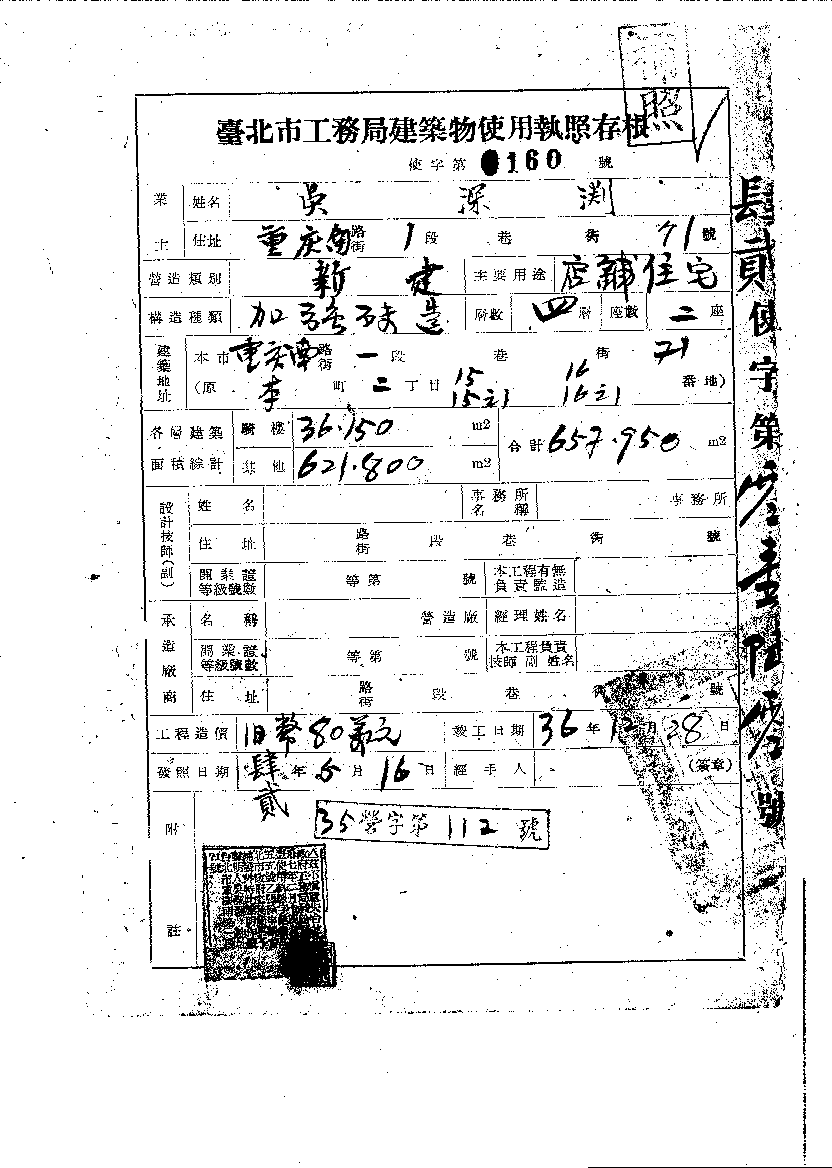 照
臺北市工務局建築物使用執照存根
使字第 0160 號
業主 姓名 吳深渊
住址 重庆南路街 1段 巷 街 71號
營造類別 新建 主要用途 店舖住宅
構造種類 加強磚造 層數 四層 座數 二座
建築地址 本市 重庆南路街 一段 巷 街 71
(原 町 二丁目 15 15之1 16 16之1 番地)
各層建築面積總計 騎樓 36.150 m2 合計 657.950 m2
其他 621.800 m2
設計技師(副) 姓名 事務所名稱 事務所
住址 路街 段 巷 街 號
開業證等級號數 等第 號 本工程有無負責監造
承造廠商 名稱 營造廠 經理姓名
開業證等級號數 等第 號 本工程負責技師副姓名
住址 路街 段 巷 街 號
工程造價 旧幣80萬元 竣工日期 36年12月28日
發照日期 肆貳年5月16日 經手人 (簽章)
附註
35營字第112號
肆貳使字第零壹陸零號